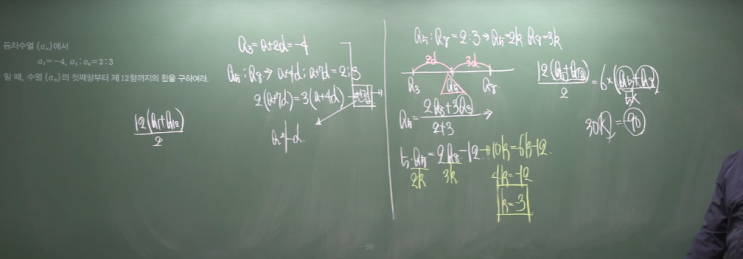 등차수열 {aₙ}에서
a₃=-4, a₅:a₈=2:3
일 때, 수열 {aₙ}의 첫째항부터 제12항까지의 합을 구하여라.
12(a₁+a₁₂)
2
a₃=a+2d=-4
a₅:a₈⇒ a+4d:a+7d=2:3
2(a+7d)=3(a+4d)
a₅:a₈=2:3⇒a₅=2k a₈=3k
2d 3d
a₃ a₅ a₈
a₅=2a₈+3a₃/2+3
5·a₅=2a₈-12→10k=6k-12
2k 3k
4k=-12
k=-3
12(a₁+a₁₂)/2=6×(a₅+a₈)
5k
30k=-90